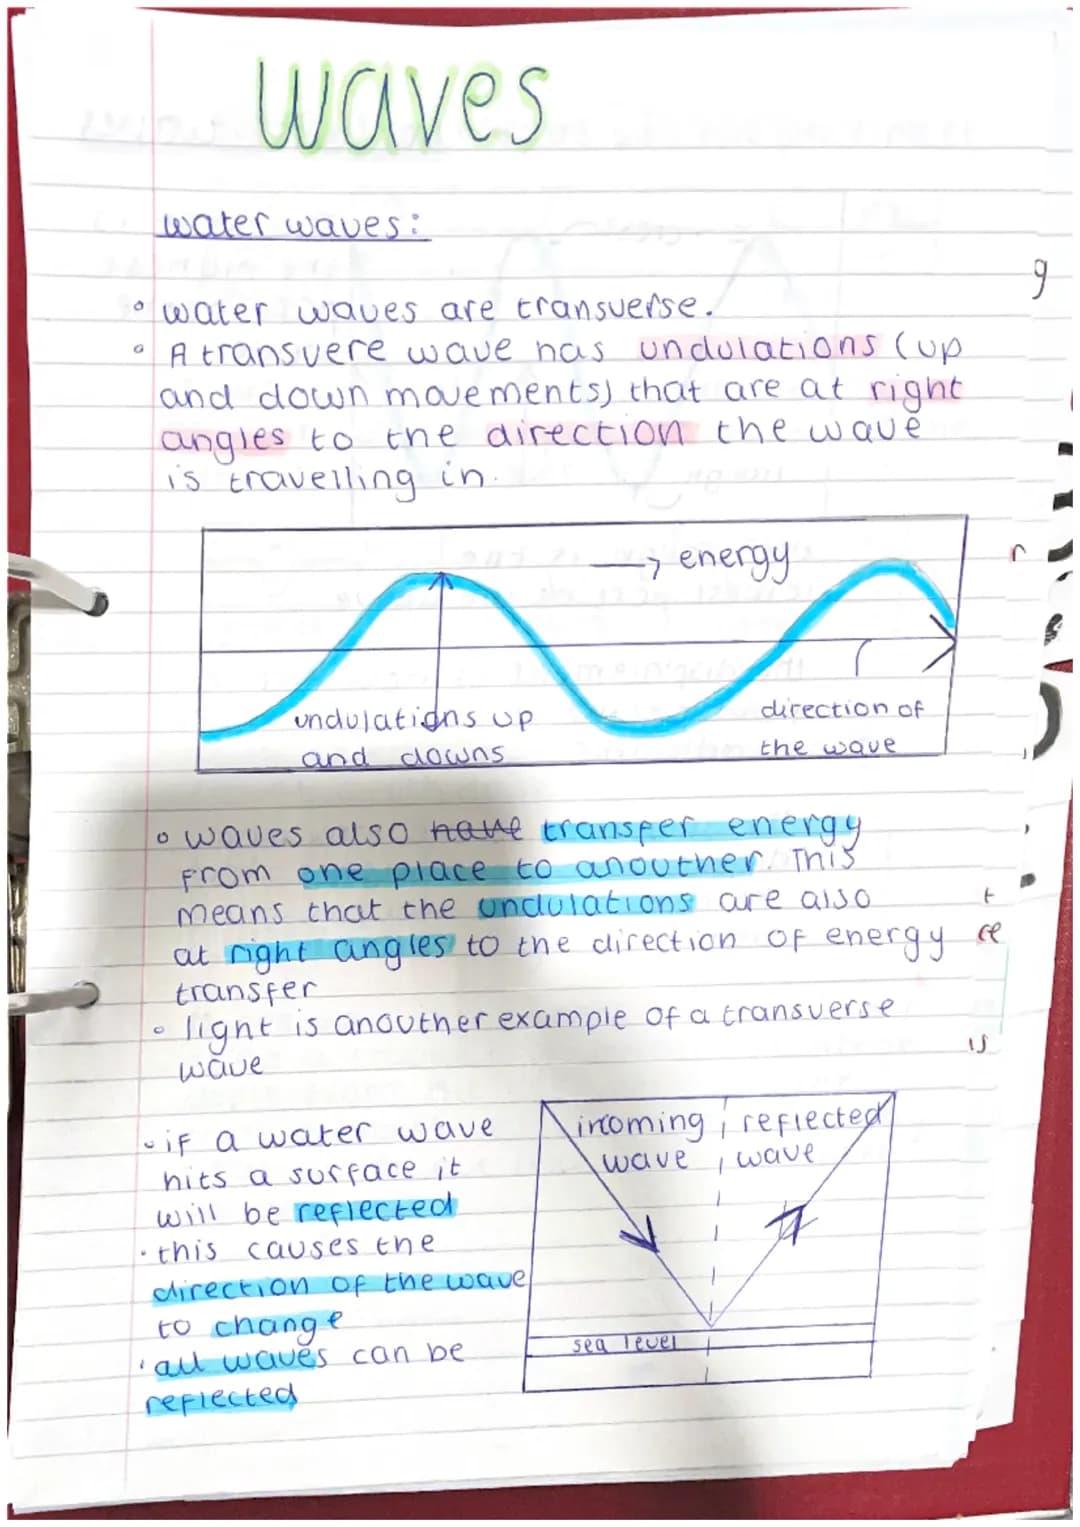 waves
water waves:
° water waves are transverse.
° A transvere wave has undulations (up
and down movements) that are at right
angles to the direction the wave
is travelling in.
→ energy
undulations up
and downs
direction of
the wave
° waves also have transfer energy
from one place to anouther. This
means that the undulations are also
at right angles to the direction of energy
transfer
° light is anouther example of a transverse
wave
• if a water wave
hits a surface it
will be reflected
• this causes the
direction of the wave
to change
• all waves can be
reflected
incoming reflected
wave wave
sea level
g
r
t
ce
is